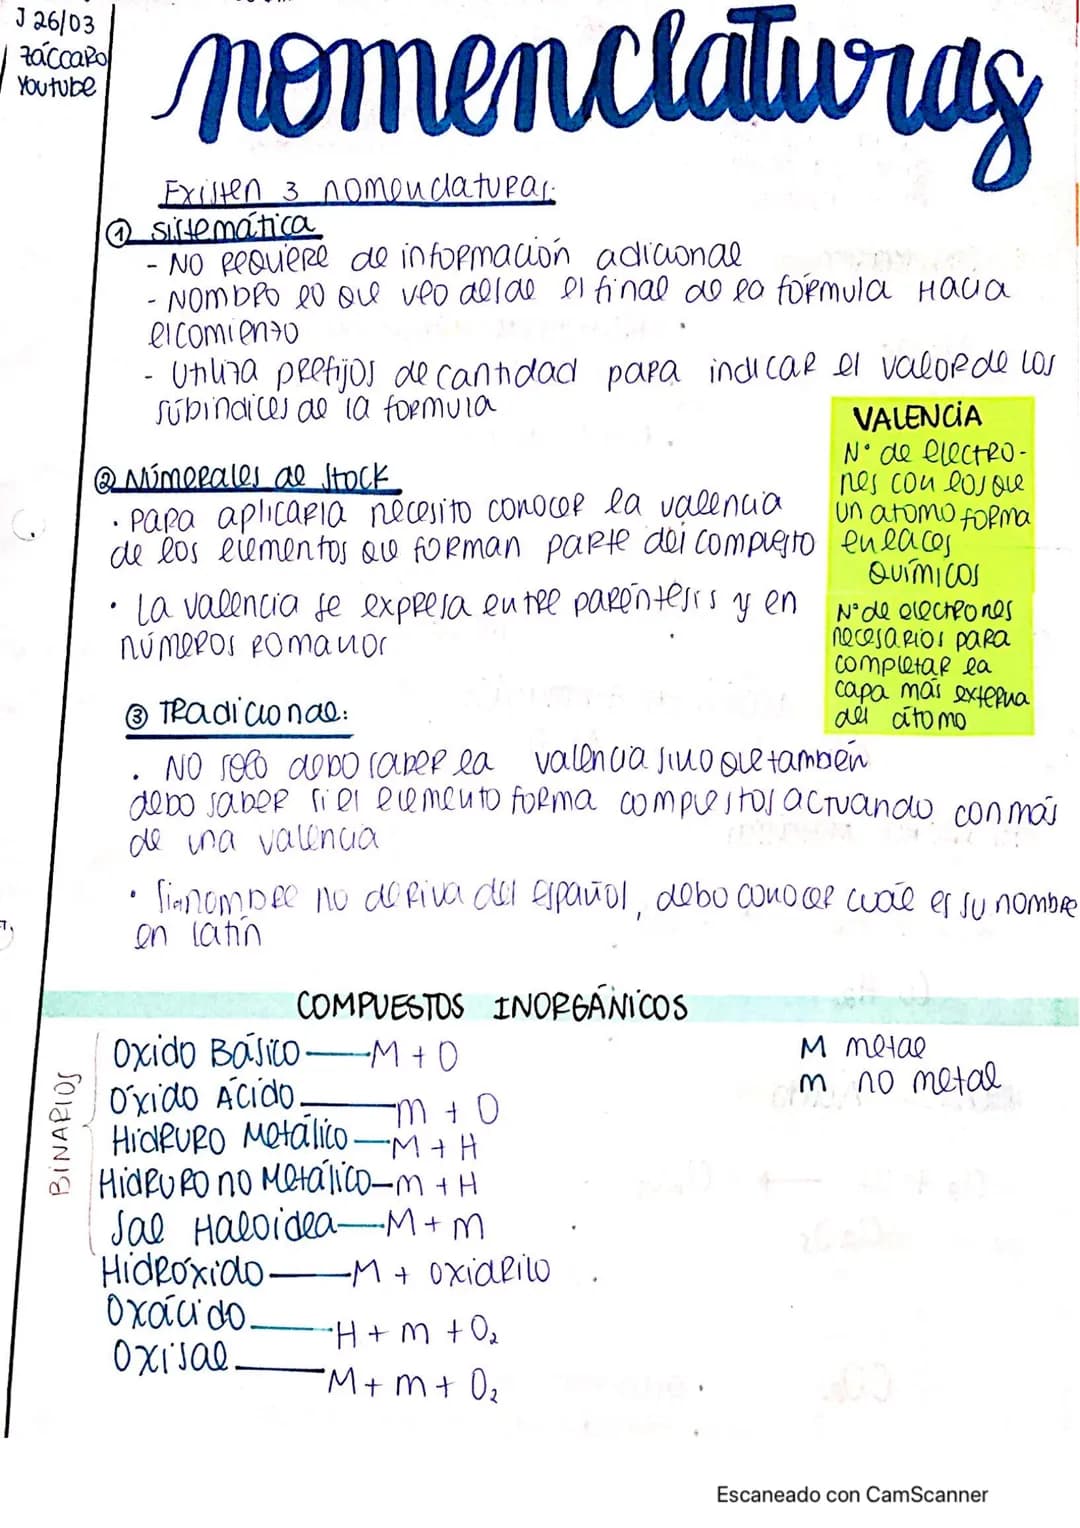 J 26/03
záccaro
Youtube
nomenclaturas
Existen 3 nomenclaturas:
① sistemática
- NO requiere de información adicional
- NOMbro lo que veo desde el final de la fórmula Hacia
el comienzo
- Utiliza prefijos de cantidad para indicar el valor de los
súbindices de la formula
② Númerales de Stock
· para aplicarla necesito conocer la valencia
de los elementos que forman parte del compuesto
· La valencia se expresa entre paréntesis y en
números romanos
VALENCiA
N° de electro-
nes con los que
un atomo forma
enlaces
QuíMicos
N° de electrones
necesarios para
completar la
capa más externa
del átomo
③ Tradicional:
· NO solo debo saber la valencia sino que también
debo saber si el elemento forma compuestos actuando con más
de una valencia
· Si nombre no deriva del español, debo conocer cuál es su nombre
en latín
COMPUESTOS INORGÁNICOS
BiNARiOS
Oxido Básico — M + O
Óxido Ácido — m + O
Hidruro Metálico — M + H
Hidruro no Metálico — m + H
Sal Haloidea — M + m
Hidróxido — M + oxidrilo
Oxácido — H + m + O₂
Oxisal — M + m + O₂
M metal
m no metal
Escaneado con CamScanner